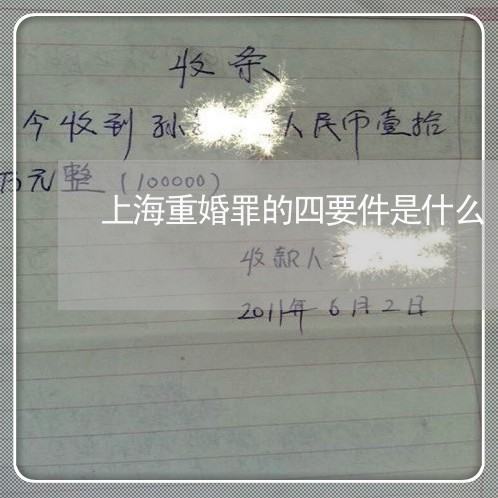 收条
今收到孙 人民币壹拾
万元整(100000)
上海重婚罪的四要件是什么
收款人
2011年6月2日